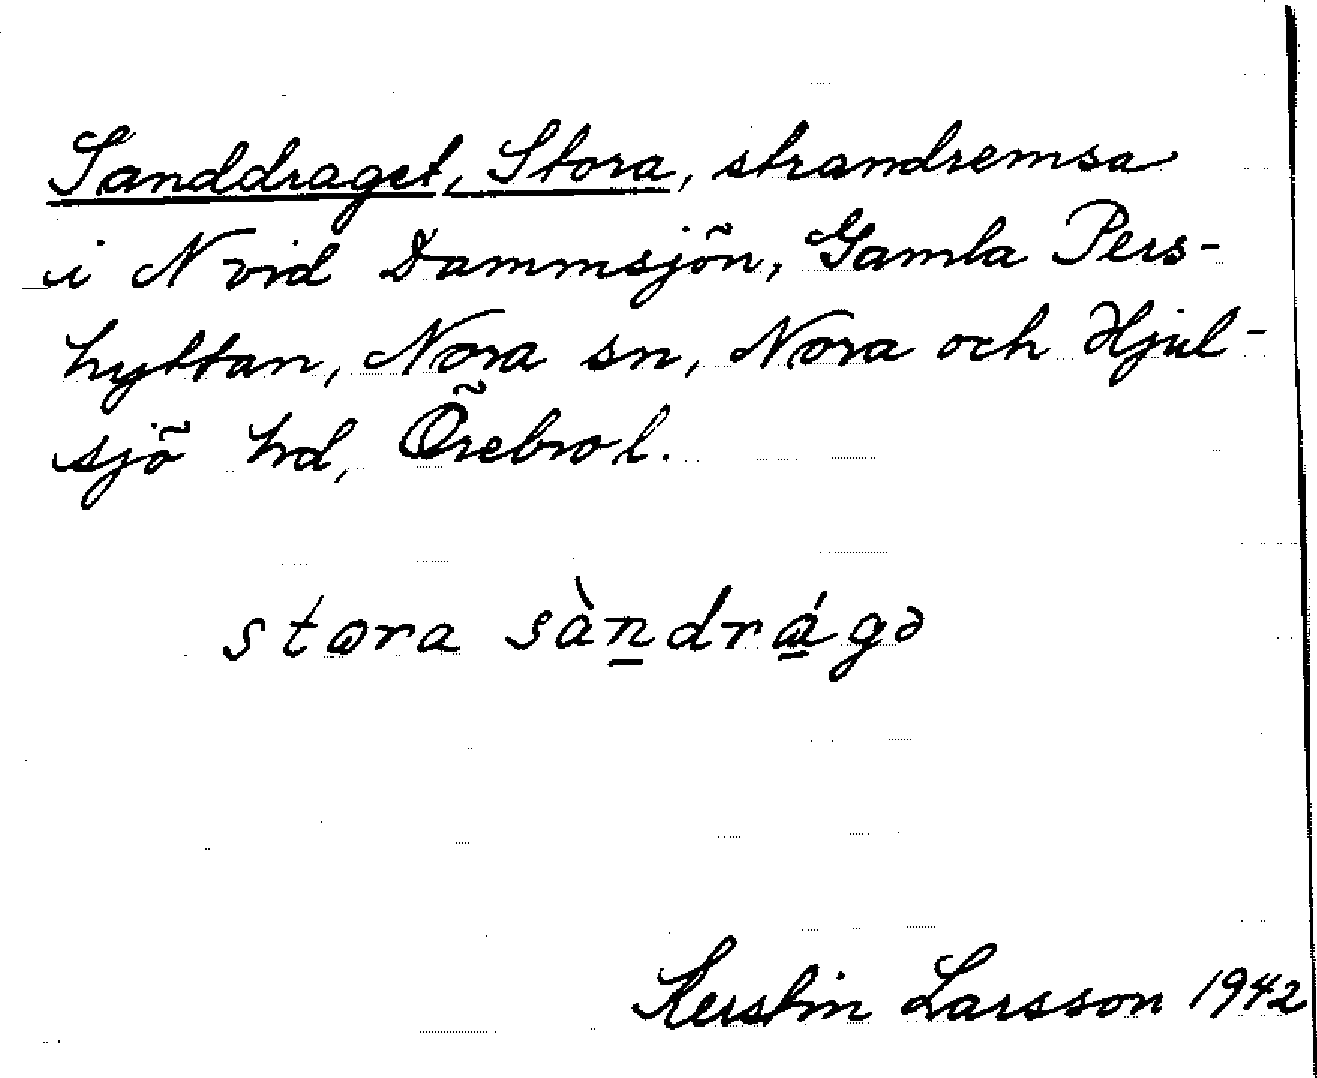 Sanddraget, Stora, strandremsa
i N vid Dammsjön, Gamla Pers-
hyttan, Nora sn, Nora och Hjul-
sjö hd, Örebro l.
stɷra sàn̲drá̲gə
Kerstin Larsson 1942